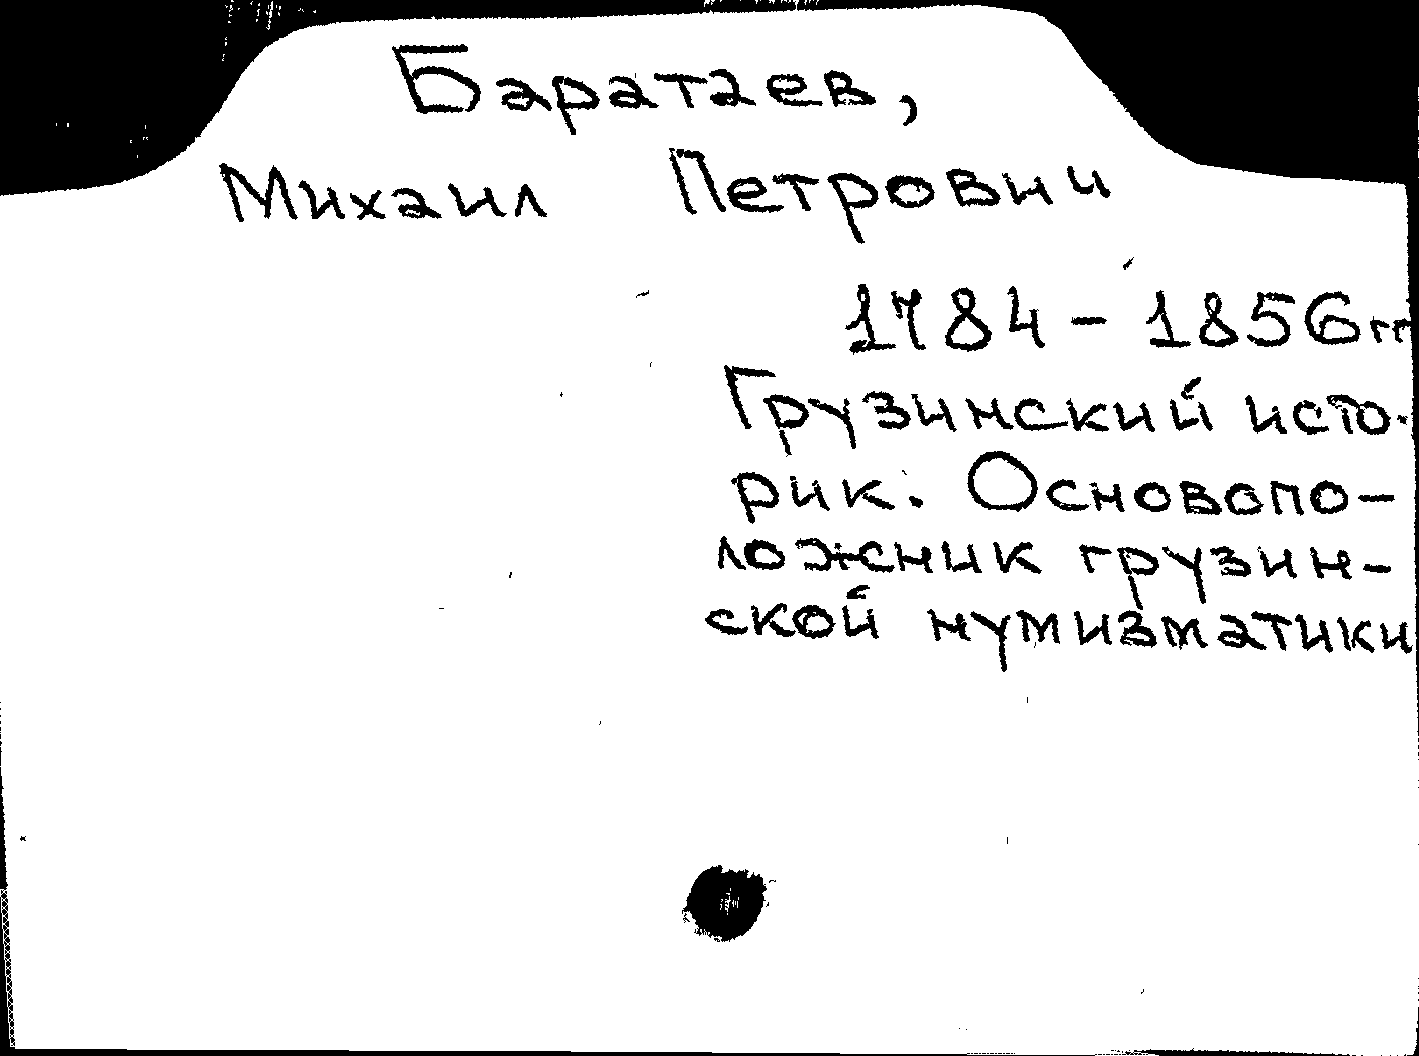 Баратаев,
Михаил Петрович
1784 - 1856 гг
Грузинский исто-
рик. Основопо-
ложник грузин-
ской нумизматики